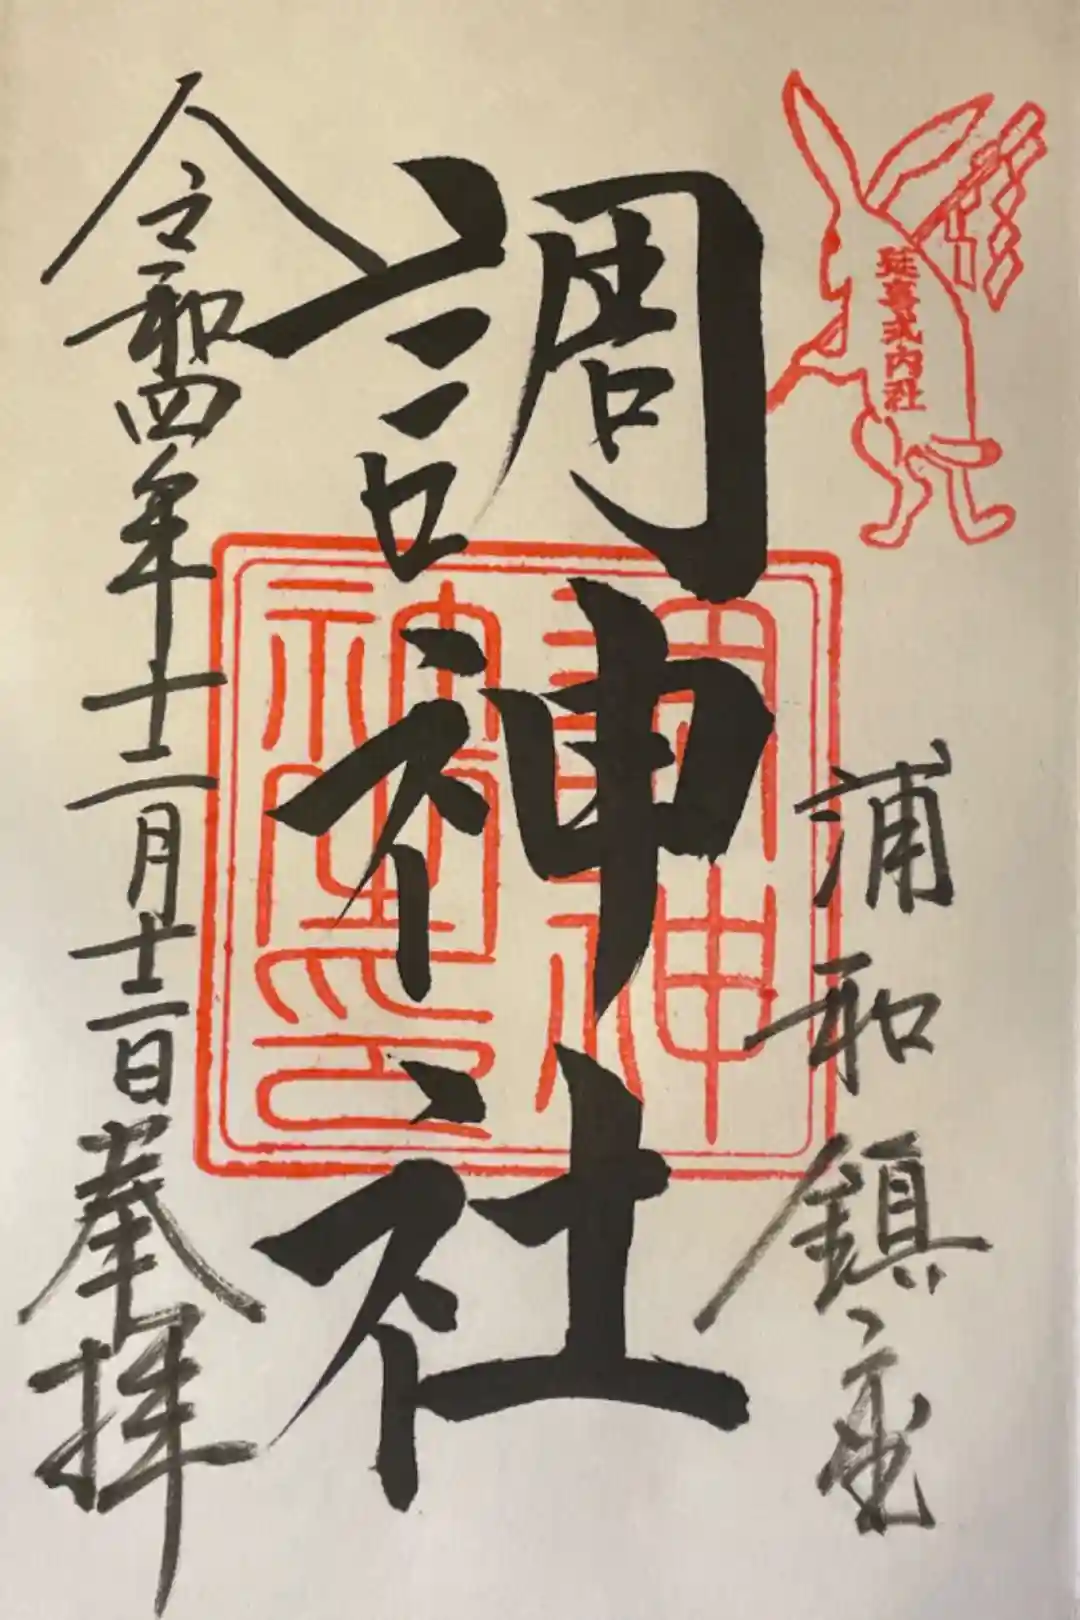 延喜式内社
浦和鎮座
調神社
調神
社璽印
令和四年十二月十二日奉拝